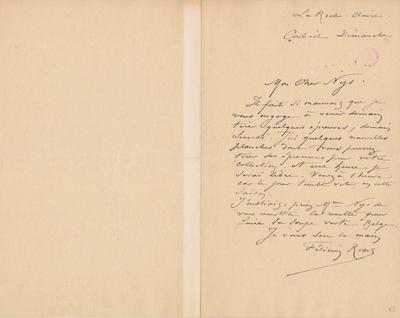 La Roche-Claire
Corbeil Dimanche
Mon Cher Nys.
Il fait si mauvais que je
vous engage à venir demain
tirer quelques épreuves, demain
Lundi. J'ai quelques nouvelles
planches dont vous pouvez
tirer des épreuves pour votre
collection. A une heure je
serai libre. Venez à 1 heure
car le jour tombe vite en cette
saison.
J'oubliais: priez Mme Nys de
vous remettre la recette pour
faire la soupe verte Belge.
Je vous serre la main
Félicien Rops